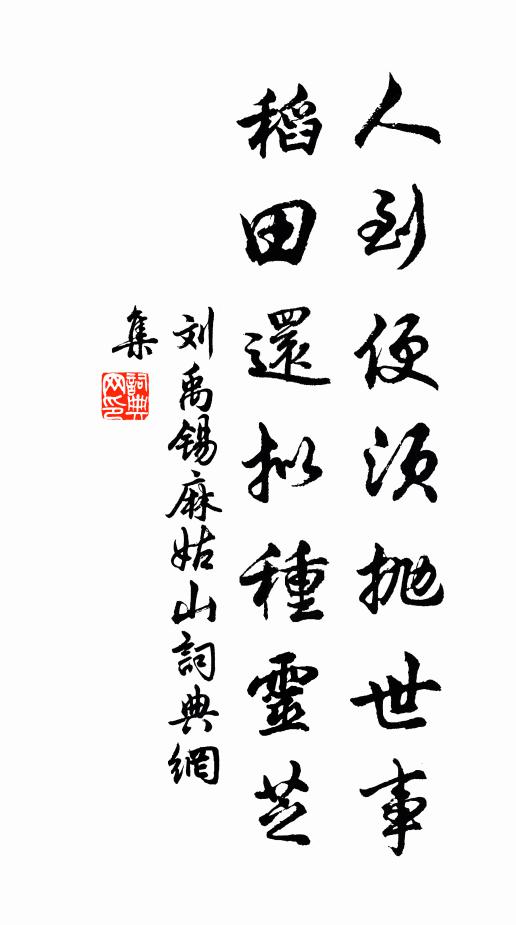 人到便须抛世事
稻田還拟種靈芝
刘禹锡麻姑山詞典網
集
詞典
网印